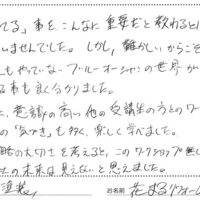 てる」事を、こんなに重要だと教わると
いませんでした。しかし、難かしいからこそ
もやっていないブルーオーシャンの世界が
る事も良く分かりました。
に、意識の高い他の受講生の方とのワー
の"気づき"も多く、楽しく学べました。
略の大切さを考えると、このワークショップ無し
社の未来は見えないと思えました。
塗装
お名前 花まるリフォーム